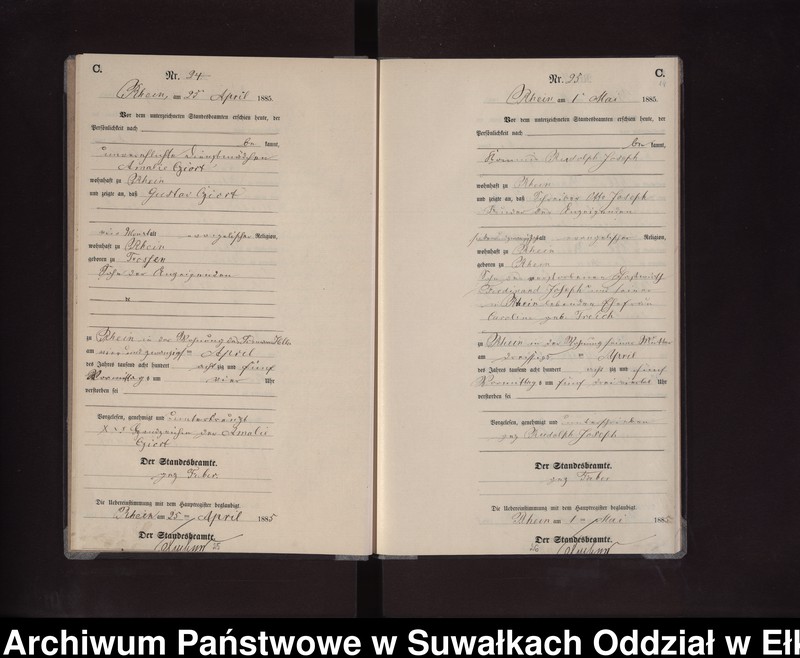 C.
Nr. 24
Rhein, am 25 April 1885.
Vor dem unterzeichneten Standesbeamten erschien heute, der
Persönlichkeit nach
be kannt,
unverehelichte Dienstmädchen
Amalie Cziort
wohnhaft zu Rhein
und zeigte an, daß Gustav Cziort
ein Monat alt evangelischer Religion,
wohnhaft zu Rhein
geboren zu
Sohn der Anzeigenden
zu Rhein in der Wohnung
am vier und zwanzigsten April
des Jahres tausend acht hundert acht zig und fünf
Vormittags um vier Uhr
verstorben sei
Vorgelesen, genehmigt und unterkreuzt
Handzeichen der Amalie
Cziort
Der Standesbeamte.
gez Faber
Die Uebereinstimmung mit dem Hauptregister beglaubigt
Rhein am 25 ten April 1885
Der Standesbeamte.
C.
Nr. 25
Rhein am 1 Mai 1885.
Vor dem unterzeichneten Standesbeamten erschien heute, der
Persönlichkeit nach
be kannt,
Rudolph Joseph
wohnhaft zu Rhein
und zeigte an, daß Schneider Otto Joseph
Bruder des Anzeigenden
alt evangelischer Religion,
wohnhaft zu Rhein
geboren zu Rhein
Sohn des verstorbenen
Ferdinand Joseph und seiner
in Rhein lebenden Ehefrau
Caroline geb
zu Rhein in der Wohnung seiner Mutter
am dreißigsten April
des Jahres tausend acht hundert acht zig und fünf
Vormittags um fünf drei viertel Uhr
verstorben sei
Vorgelesen, genehmigt und unterschrieben
gez Rudolph Joseph
Der Standesbeamte.
gez Faber
Die Uebereinstimmung mit dem Hauptregister beglaubigt
Rhein am 1 ten Mai 1885
Der Standesbeamte.
Archiwum Państwowe w Suwałkach Oddział w Ełk